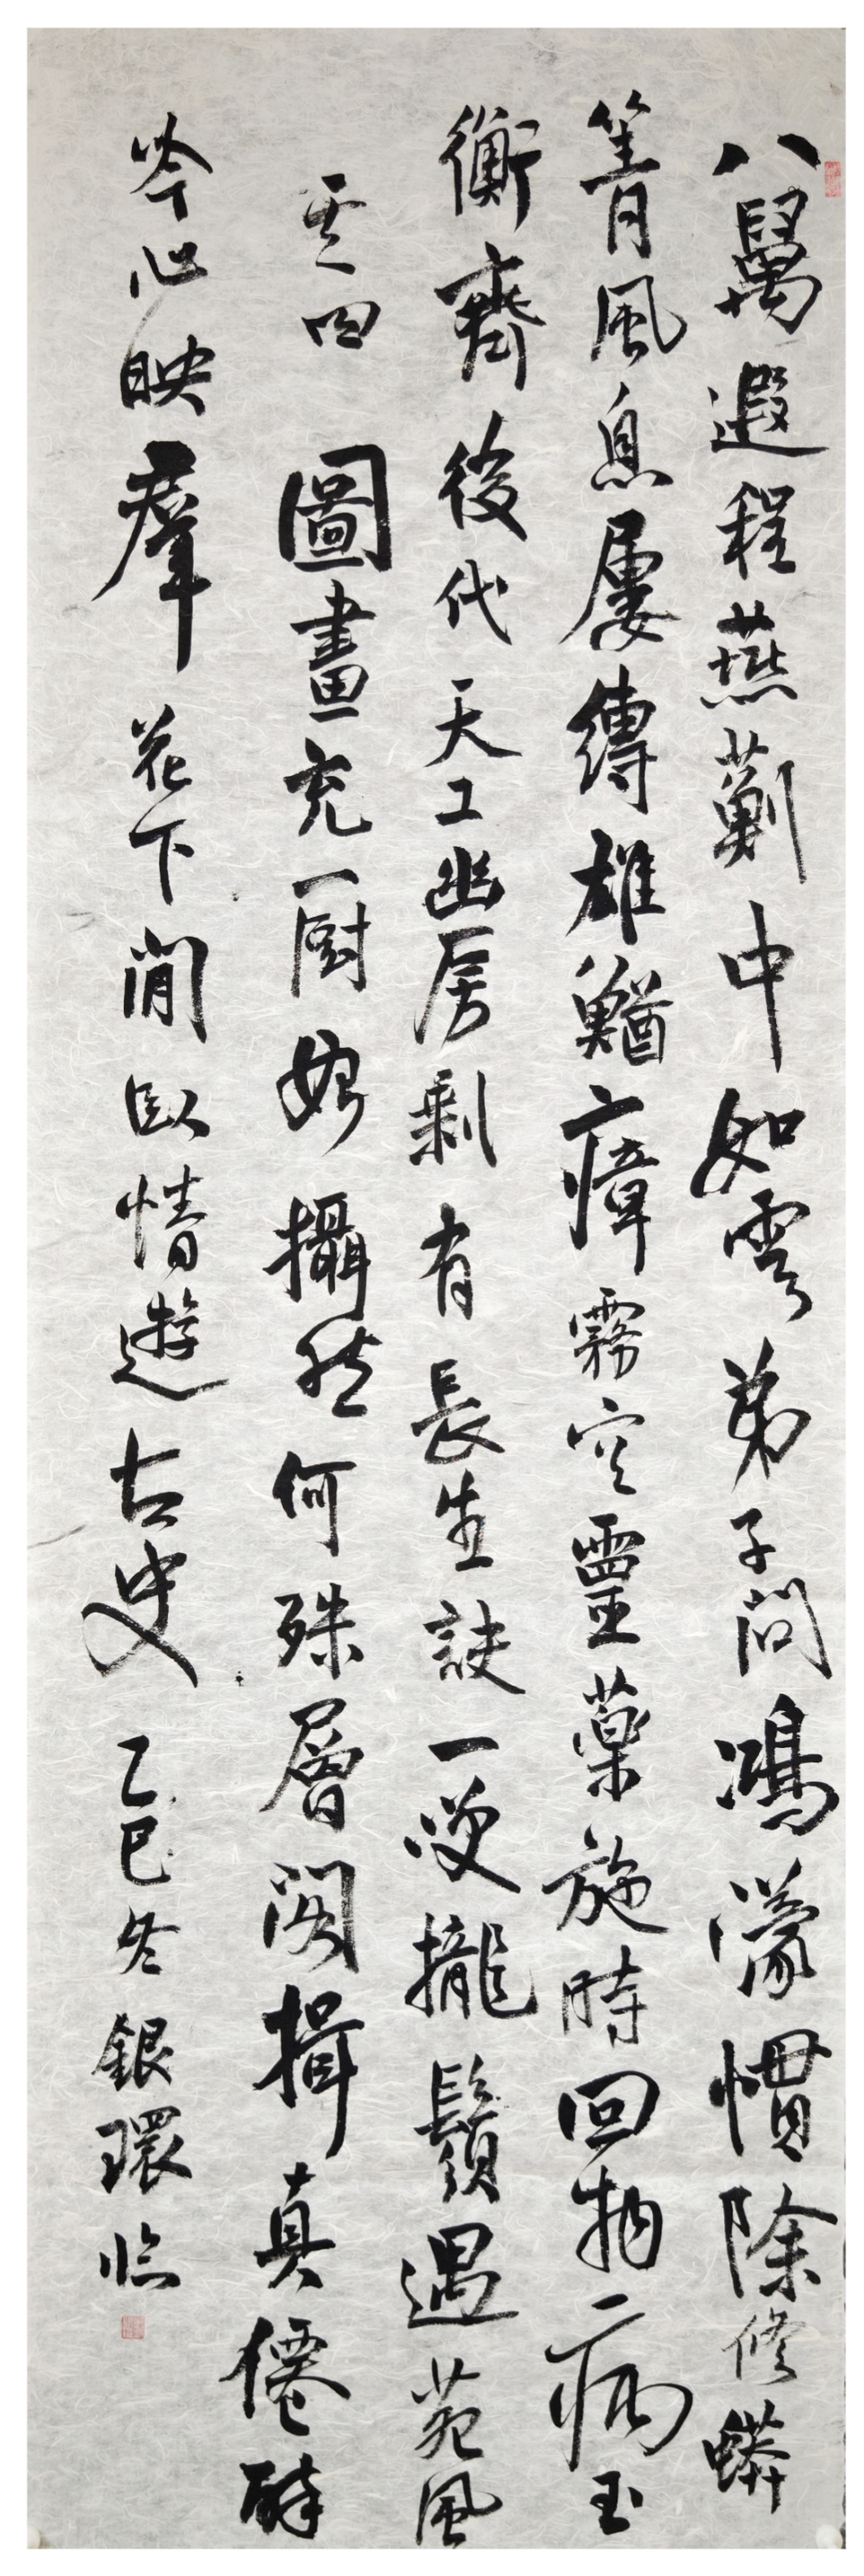 八萬遐程燕薊中如雲弟子問鴻濛慣除修蟒
箐風息屢縛雄鰌瘴霧空靈藥施時回物病玉
衡齊後代天工幽房剩有長生訣一咲攏鬚遇苑風
其四 圖畫充厨妙攝然何殊層閣揖真僊醉
吟心映羣花下閒臥情遊古史 乙巳冬銀環臨